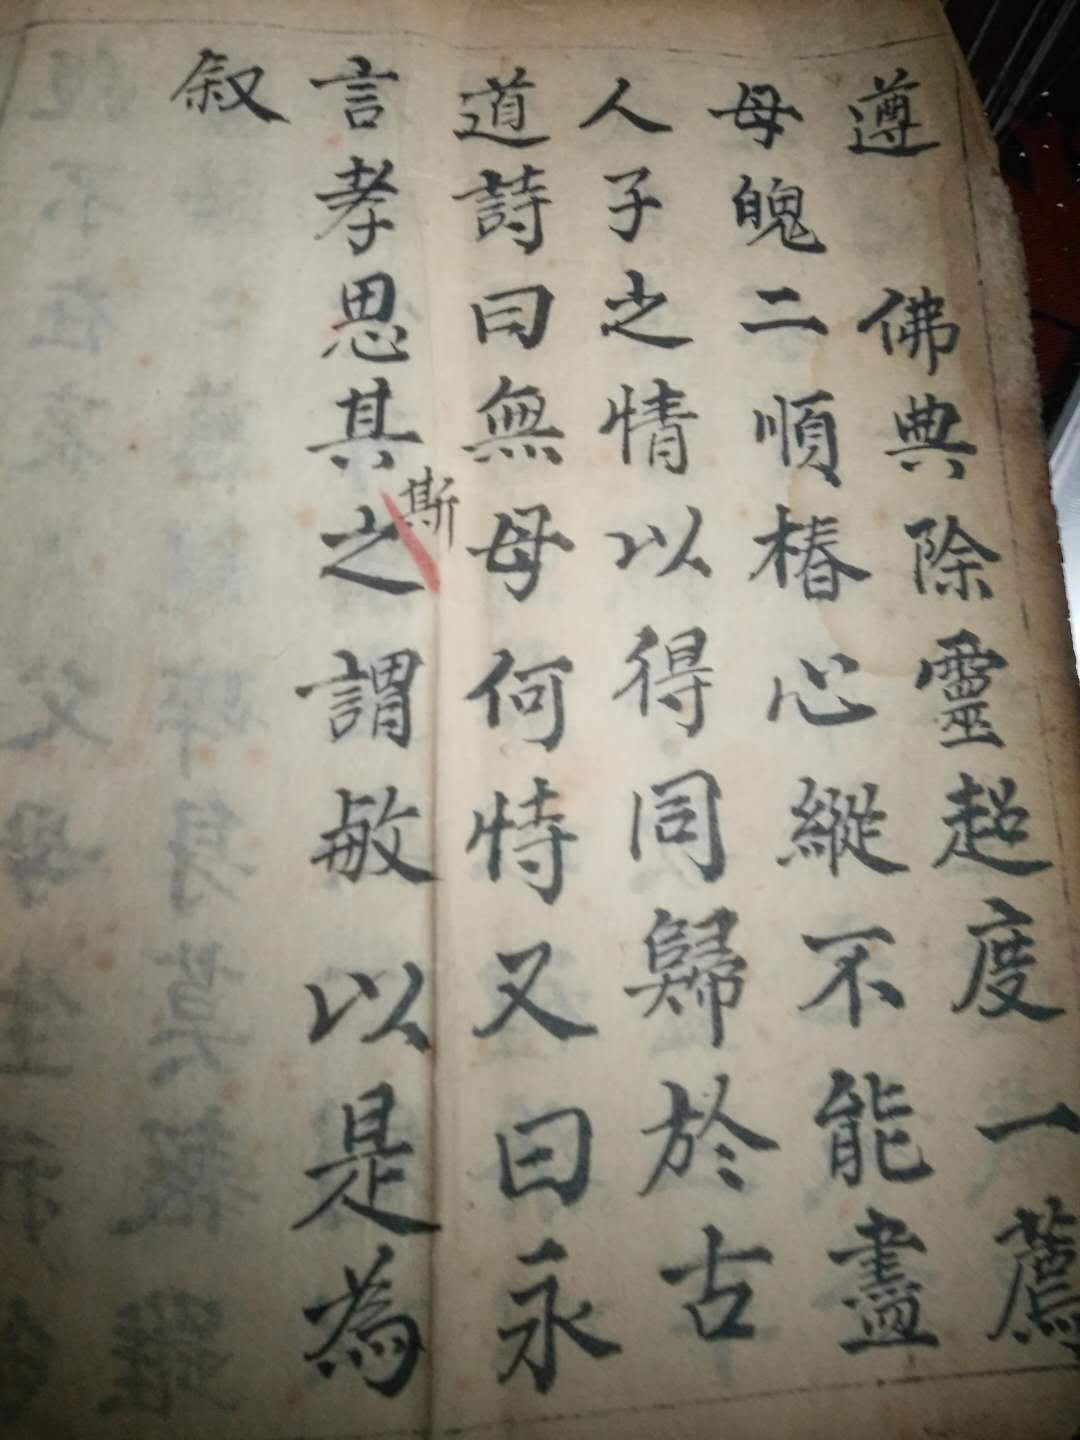 遵 佛典除靈超度一薦
母魄二順椿心縱不能盡
人子之情以得同歸於古
道詩曰無母何恃又曰永
言孝思其之謂敏以是為
斯
叙